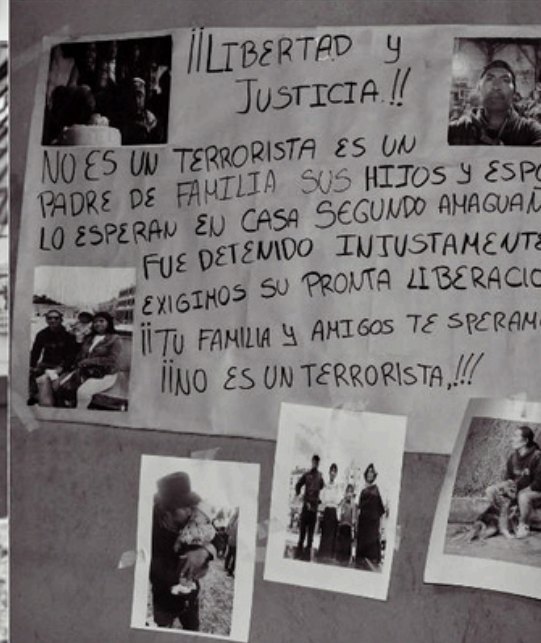 ¡¡LIBERTAD Y
JUSTICIA.!!
NO ES UN TERRORISTA ES UN
PADRE DE FAMILIA SUS HIJOS Y ESPO
LO ESPERAN EN CASA SEGUNDO AMAGUAÑ
FUE DETENIDO INJUSTAMENTE
EXIGIMOS SU PRONTA LIBERACIO
¡¡TU FAMILIA Y AMIGOS TE SPERAM
¡¡NO ES UN TERRORISTA,!!!